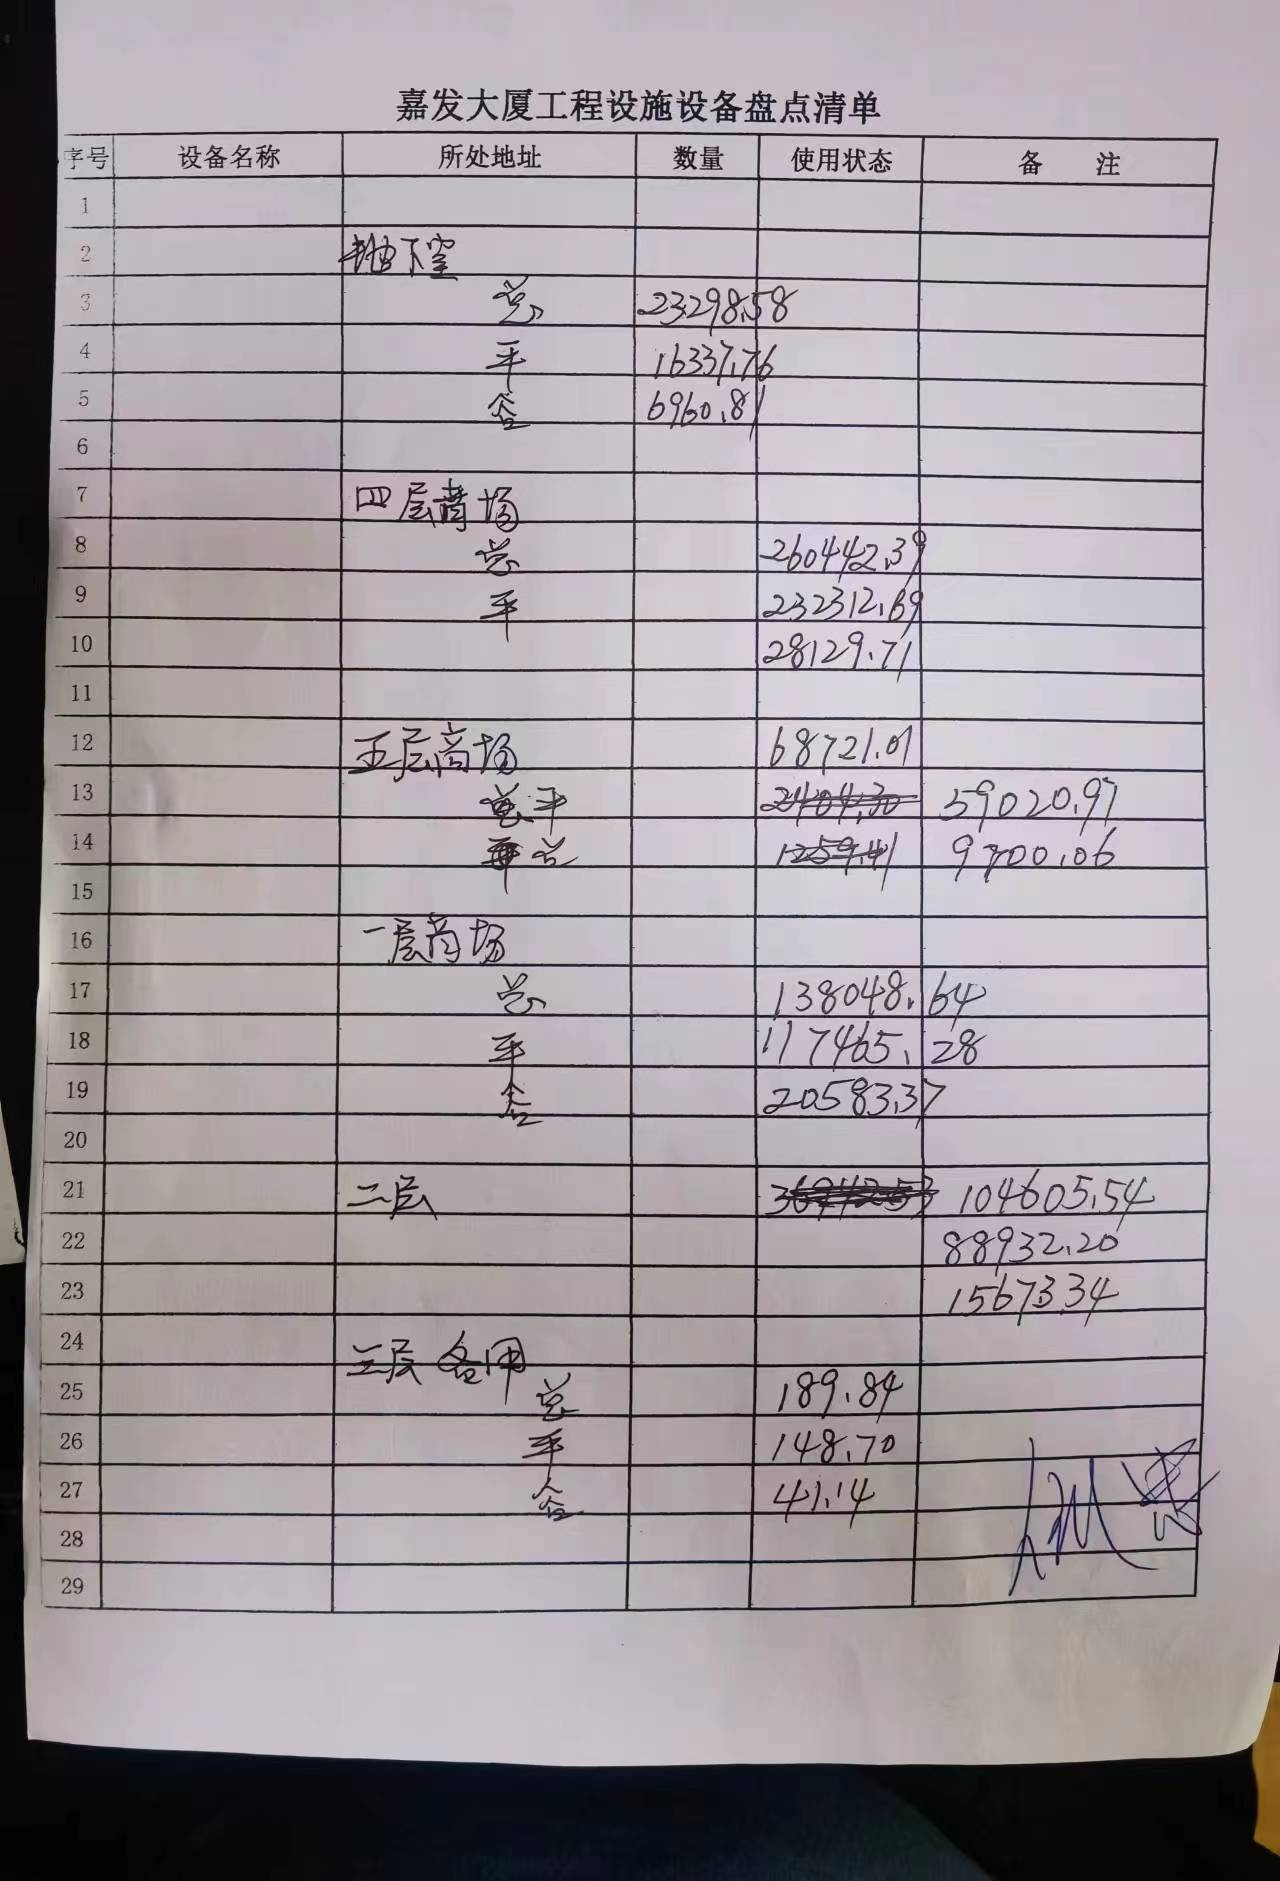 嘉发大厦工程设施设备盘点清单
序号 设备名称 所处地址 数量 使用状态 备 注
1
2 地下室
3 总 23298.58
4 平 16337.76
5 谷 6960.81
6
7 四层商场
8 总 260442.39
9 平 232312.69
10 28129.71
11
12 五层商场 68721.01
13 平 2404.30 59020.97
14 1259.41 9700.06
15
16 一层商场
17 总 138048.64
18 平 117465.28
19 谷 20583.37
20
21 二层 36942.53 104605.54
22 88932.20
23 15673.34
24 三层 备用
25 总 189.84
26 平 148.70
27 谷 41.14
28
29